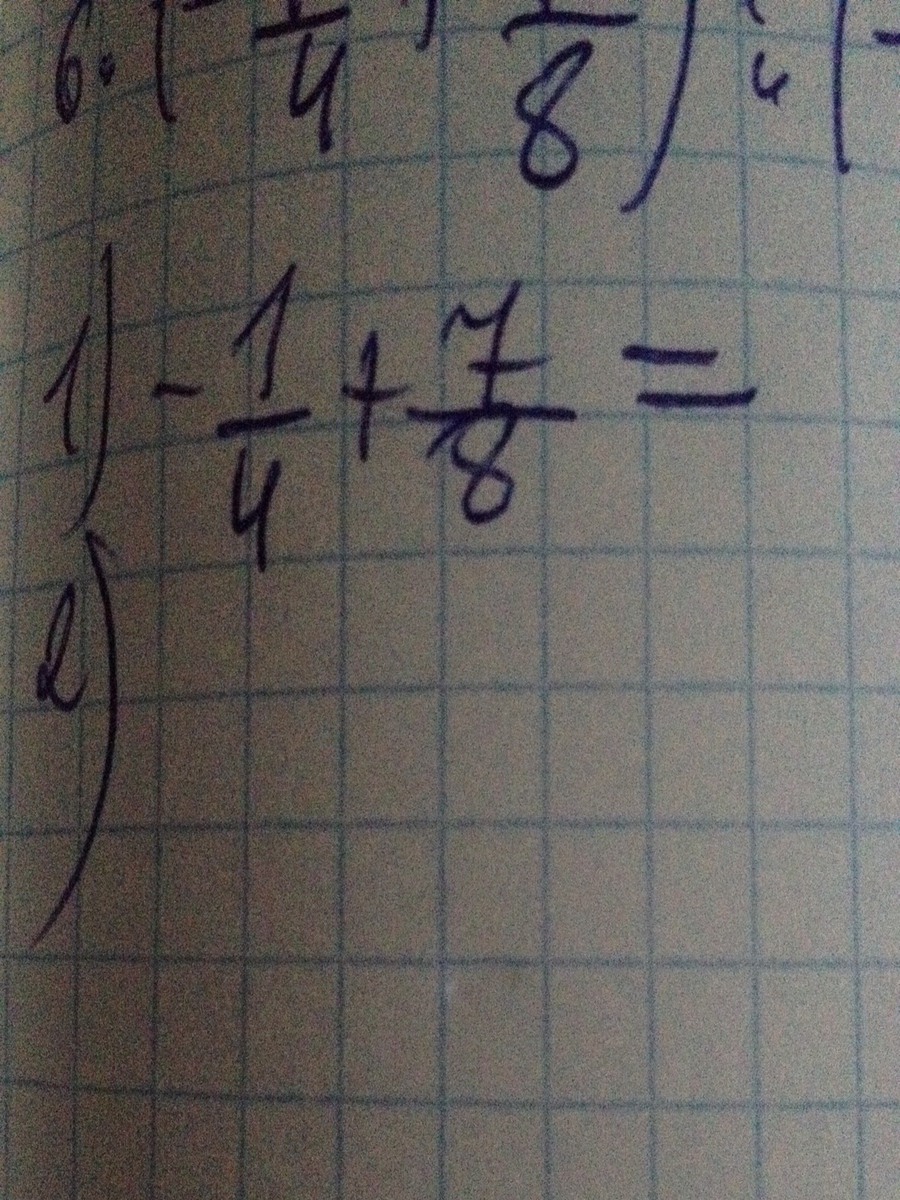 6. (- /4 + /8) : (-
1) - 1/4 + 7/8 =
2)